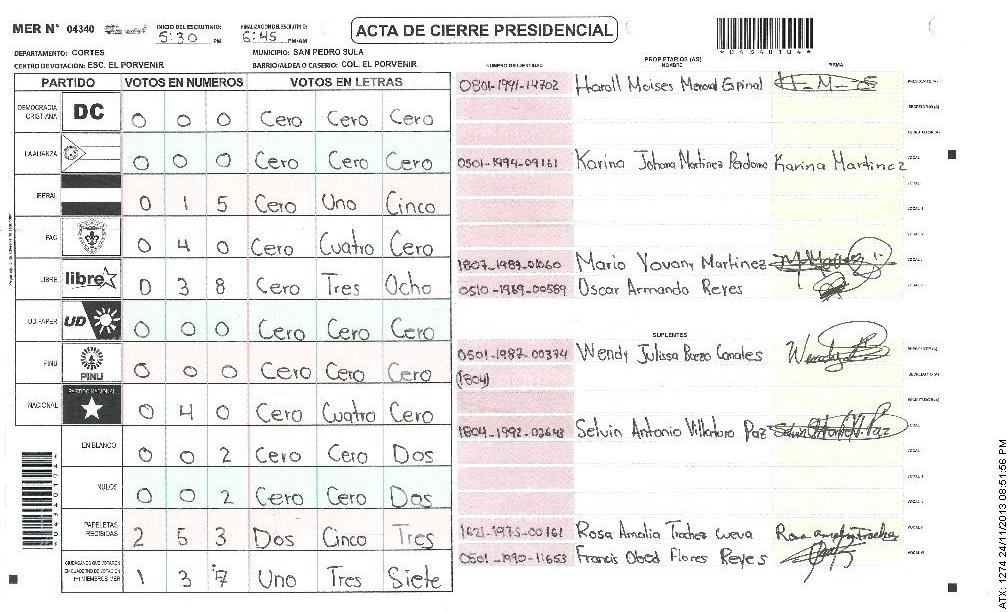 MER N° 04340 INICIO DEL ESCRUTINIO: 5:30 PM FINALIZACION DEL ESCRUTINIO: 6:45 PM/AM ACTA DE CIERRE PRESIDENCIAL
DEPARTAMENTO: CORTES MUNICIPIO: SAN PEDRO SULA
CENTRO DE VOTACIÓN: ESC. EL PORVENIR BARRIO/ALDEA O CASERIO: COL. EL PORVENIR
PARTIDO VOTOS EN NUMEROS VOTOS EN LETRAS
DEMOCRACIA CRISTIANA DC 0 0 0 Cero Cero Cero
LA ALIANZA 0 0 0 Cero Cero Cero
LIBERAL 0 1 5 Cero Uno Cinco
PAC 0 4 0 Cero Cuatro Cero
LIBRE libre 0 3 8 Cero Tres Ocho
UD FAPER UD 0 0 0 Cero Cero Cero
PINU PINU 0 0 0 Cero Cero Cero
NACIONAL PARTIDO NACIONAL 0 4 0 Cero Cuatro Cero
EN BLANCO 0 0 2 Cero Cero Dos
NULOS 0 0 2 Cero Cero Dos
PAPELETAS RECIBIDAS 2 5 3 Dos Cinco Tres
CIUDADANOS QUE VOTARON EN CUADERNO DE VOTACION (+) MIEMBROS MER 1 3 7 Uno Tres Siete
NUMERO DE IDENTIDAD PROPIETARIOS (AS) NOMBRE FIRMA
0801-1991-14702 Haroll Moises Espinal H-M-E PRESIDENTE (A)
SECRETARIO (A)
0501-1994-09161 Karina Johana Martinez Karina Martinez VOCAL
1807-1989-01060 Mario Yovany Martinez
0510-1969-00589 Oscar Armando Reyes
SUPLENTES
0501-1987-00374 Wendy Julissa Canales Wendy PRESIDENTE (A)
(1804) SECRETARIO (A)
1804-1992-02648 Selvin Antonio Villatoro Paz
1621-1975-00161 Rosa Amalia cueva Rosa
0501-1990-11653 Francis Obed Flores Reyes
ATX: 1274 24/11/2013 08:51:56 PM